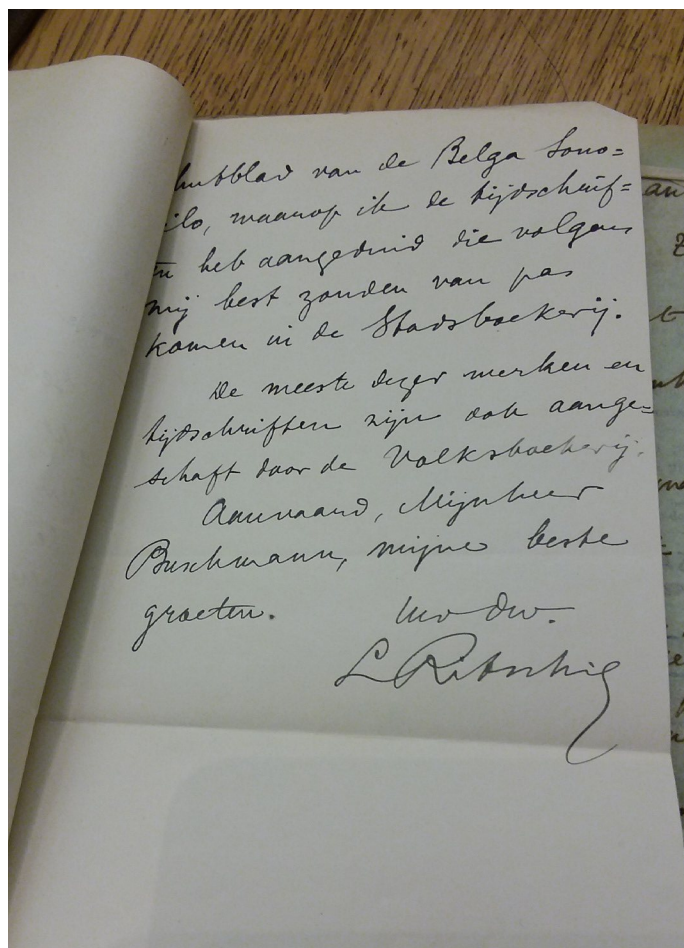 hutblad van de Belga Sono=
ilo, waarop ik de tijdschrif=
en heb aangeduid die volgens
mij best zouden van pas
komen in de Stadsboekerij.
De meeste dezer werken en
tijdschriften zijn ook aange=
schaft door de Volksboekerij.
Aanvaard, Mijnheer
Buschmann, mijne beste
groeten.
Uw dw.
L Ritschie
an